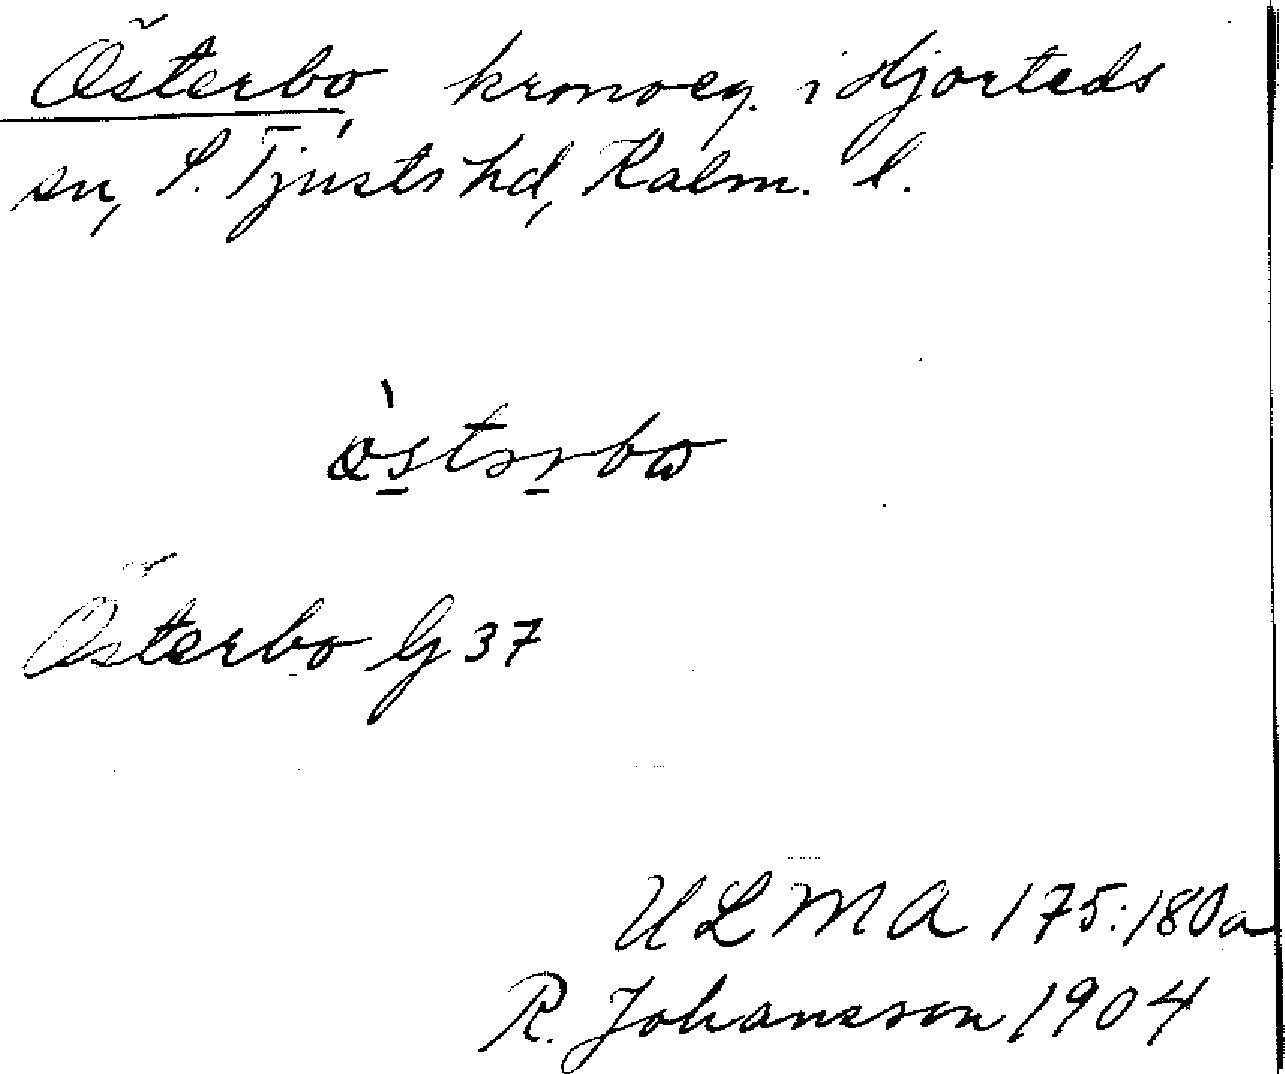 Österbo, kronoeg. i Hjorteds
sn, S. Tjusts hd, Kalm. l.
Österbo G 37
ULMA 175:180a
R. Johansson 1904